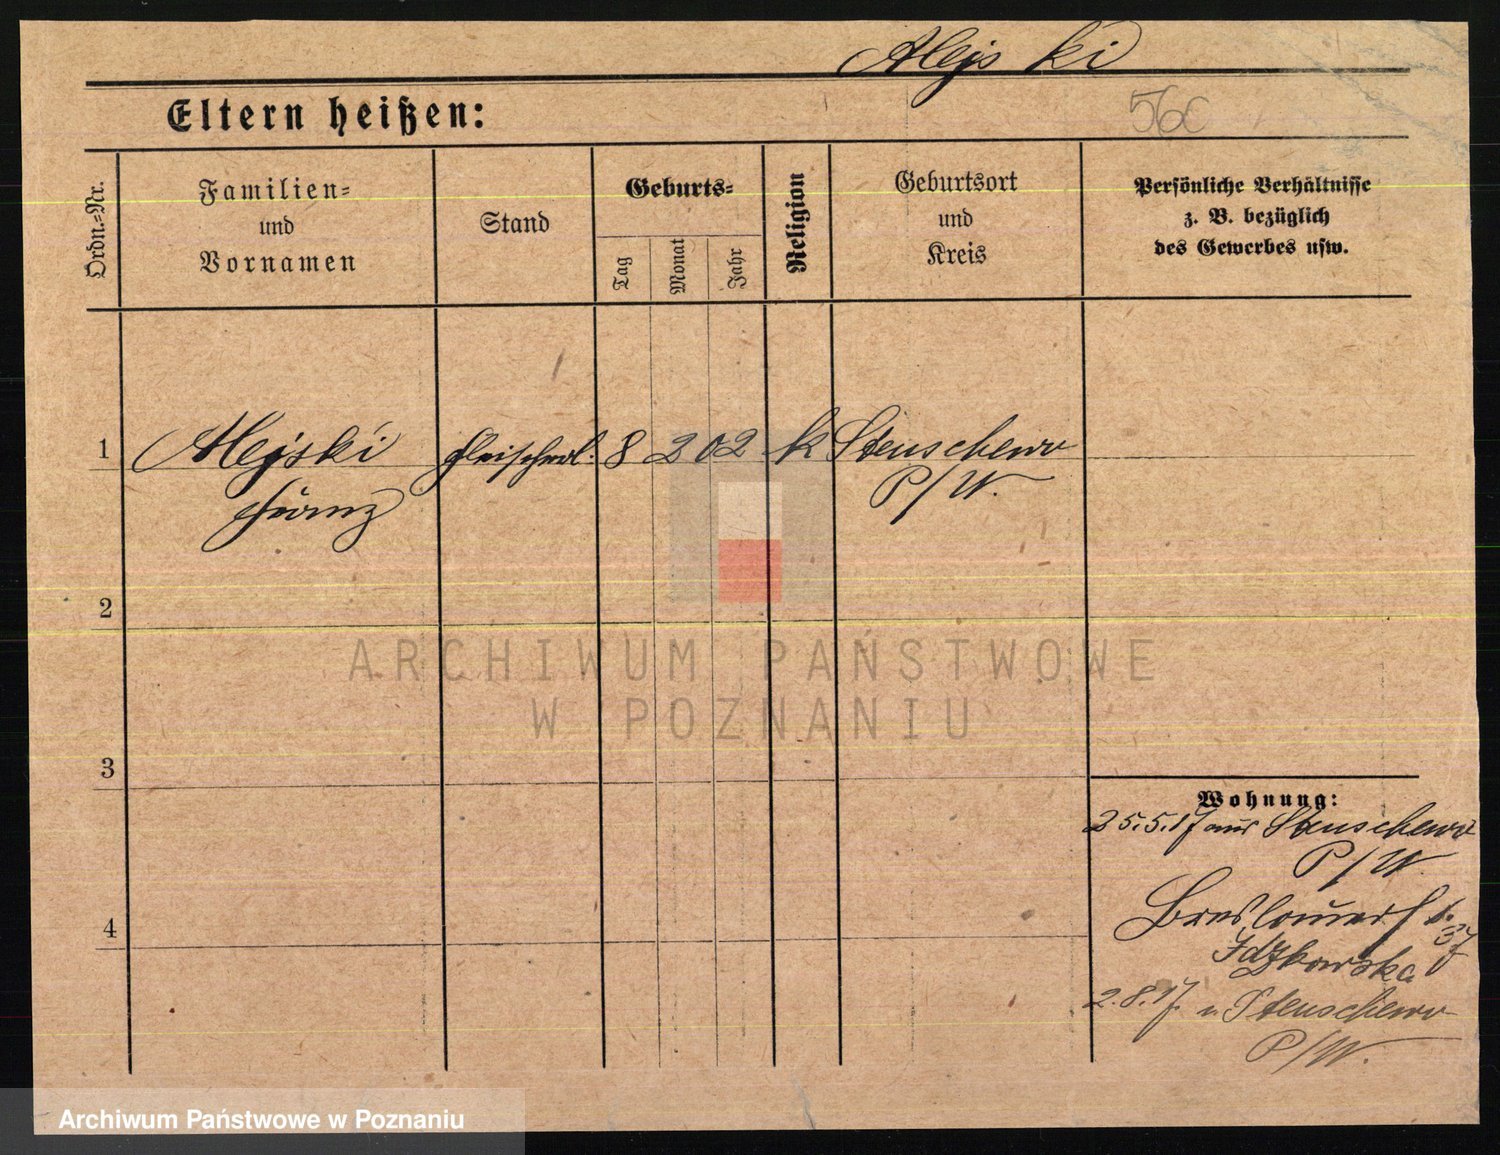 Alejski
Eltern heißen:
560
Ordn.=Nr.
Familien=
und
Vornamen
Stand
Geburts=
Tag
Monat
Jahr
Religion
Geburtsort
und
Kreis
Persönliche Verhältnisse
z. B. bezüglich
des Gewerbes usw.
1 Alejski Fleischerl. 8 2 02 k Stenschewo
Franz P/W.
2
3
4
Wohnung:
25.5.17 aus Stenschewo
P/W.
Breslauerst.
37
Idzkowska
2.8.17. n Stenschewo
P/W.
ARCHIWUM PAŃSTWOWE
W POZNANIU
Archiwum Państwowe w Poznaniu